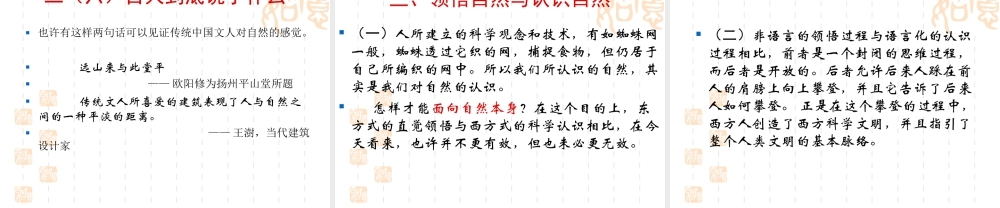 也许有这样两句话可以见证传统中国文人对自然的感觉。
远山来与此堂平
—— 欧阳修为扬州平山堂所题
传统文人所喜爱的建筑表现了人与自然之
间的一种平淡的距离。
—— 王澍，当代建筑
设计家
三、领悟自然与认识自然
（一）人所建立的科学观念和技术，有如蜘蛛网
一般，蜘蛛透过它织的网，捕捉食物，但仍居于
自己所编织的网中。所以我们所认识的自然，其
实是我们对自然的认识。
怎样才能面向自然本身？在这个目的上，东
方式的直觉领悟与西方式的科学认识相比，在今
天看来，也许并不更有效，但也未必更无效。
（二）非语言的领悟过程与语言化的认识
过程相比，前者是一个封闭的思维过程，
而后者是开放的。后者允许后来人踩在前
人的肩膀上向上攀登，并且它告诉了后来
人如何攀登。 正是在这个攀登的过程中，
西方人创造了西方科学文明，并且指引了
整个人类文明的基本脉络。